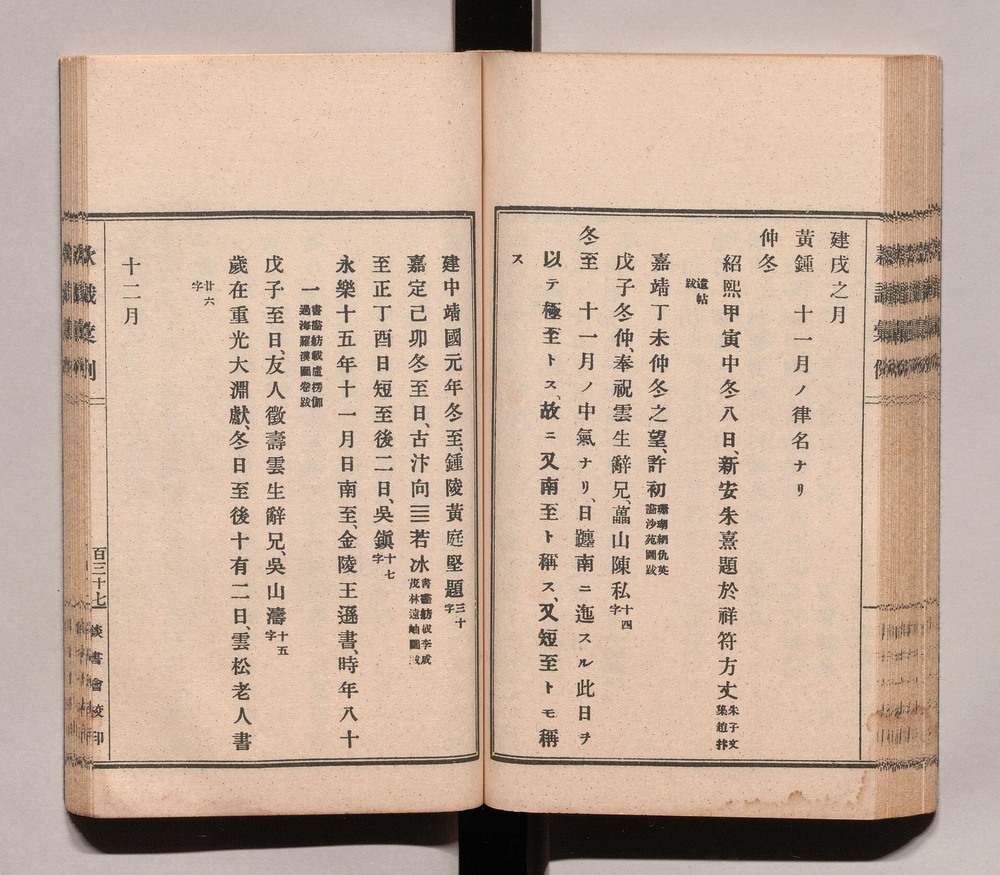 建戌之月
黃鍾　十一月ノ律名ナリ
仲冬
紹熙甲寅中冬八日、新安朱熹題於祥符方丈朱子文集趙抃
遺帖跋
嘉靖丁未仲冬之望、許初珊瑚網仇英滄沙苑圖跋
戊子冬仲、奉祝雲生辭兄、藟山陳私十四字
冬至　十一月ノ中氣ナリ、日躔南ニ迤スル此日ヲ
以テ極至トス、故ニ又南至ト稱ス、又短至トモ稱
ス
建中靖國元年冬至、鍾陵黃庭堅題三十字
嘉定己卯冬至日、古汴向三若冰書畫舫載李成茂林遠岫圖跋
至正丁酉日短至後二日、吳鎭十七字
永樂十五年十一月日南至、金陵王遜書、時年八十
一書畫舫載盧楞伽過海羅漢圖卷跋
戊子至日、友人徵壽雲生辭兄、吳山濤十五字
歲在重光大淵獻、冬日至後十有二日、雲松老人書
廿六字
十二月
欵識彙例
百三十七
談書會校印